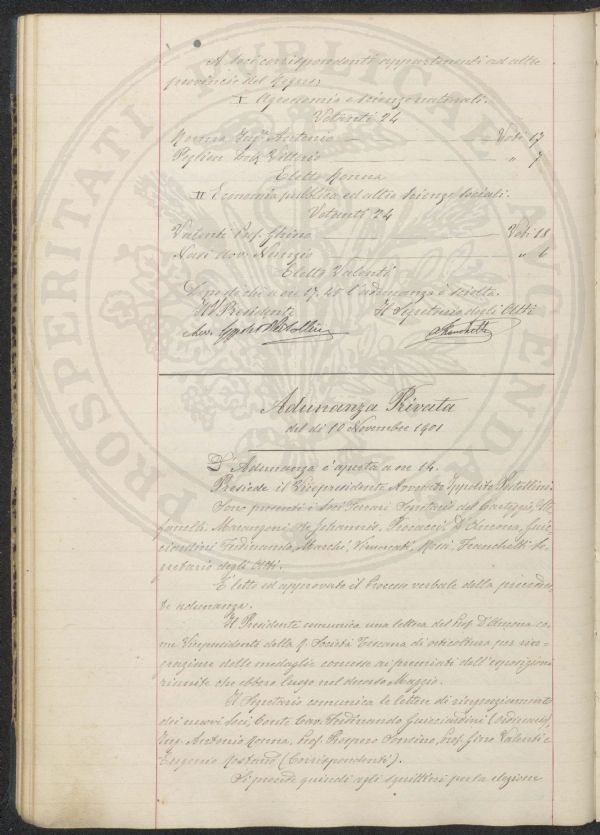 A Soci corrispondenti appartenenti ad altre
provincie del Regno:
I Agronomia e scienze naturali.
Votanti 24
Ronna Ingr Antonio — Voti 17
Peglion Dott. Vittorio — " 7
Eletto Ronna
II Economia pubblica ed altre scienze sociali.
Votanti 24
Valenti Prof. Ghino — Voti 18
Nasi Avv. Nunzio — " 6
Eletto Valenti
Dopo di che a ore 17.40 l'adunanza è sciolta.
Il V. Presidente Il Segretario degli Atti
Avv. Ippolito Pestellini A. Franchetti
Adunanza Privata
del dì 10 Novembre 1901
L'Adunanza è aperta a ore 14.
Presiede il Vicepresidente Avvocato Ippolito Pestellini.
Sono presenti i Soci Ferrari Segretario del Carteggio,
Marangoni, De Johannis, D'Ancona, Guic
ciardini Ferdinando, Marchi, Vimercati, Franchetti Se
gretario degli Atti.
È letto ed approvato il Processo verbale della preceden
te adunanza.
Il Presidente comunica una lettera del Prof. D'Ancona co
me Vicepresidente della R. Società Toscana di orticultura per rin-
graziare delle medaglie concesse ai premiati dell'esposizioni
riunite che ebbero luogo nel decorso Maggio.
Il Segretario comunica le lettere di ringraziamento
dei nuovi Soci, Conte Cav. Ferdinando Guicciardini (ordinario)
Ing. Antonio Ronna, Prof. Prospero Sonsino, Prof. Gino Valenti e
Eugenio (Corrispondenti).
Si procede quindi agli squittini per la elezione